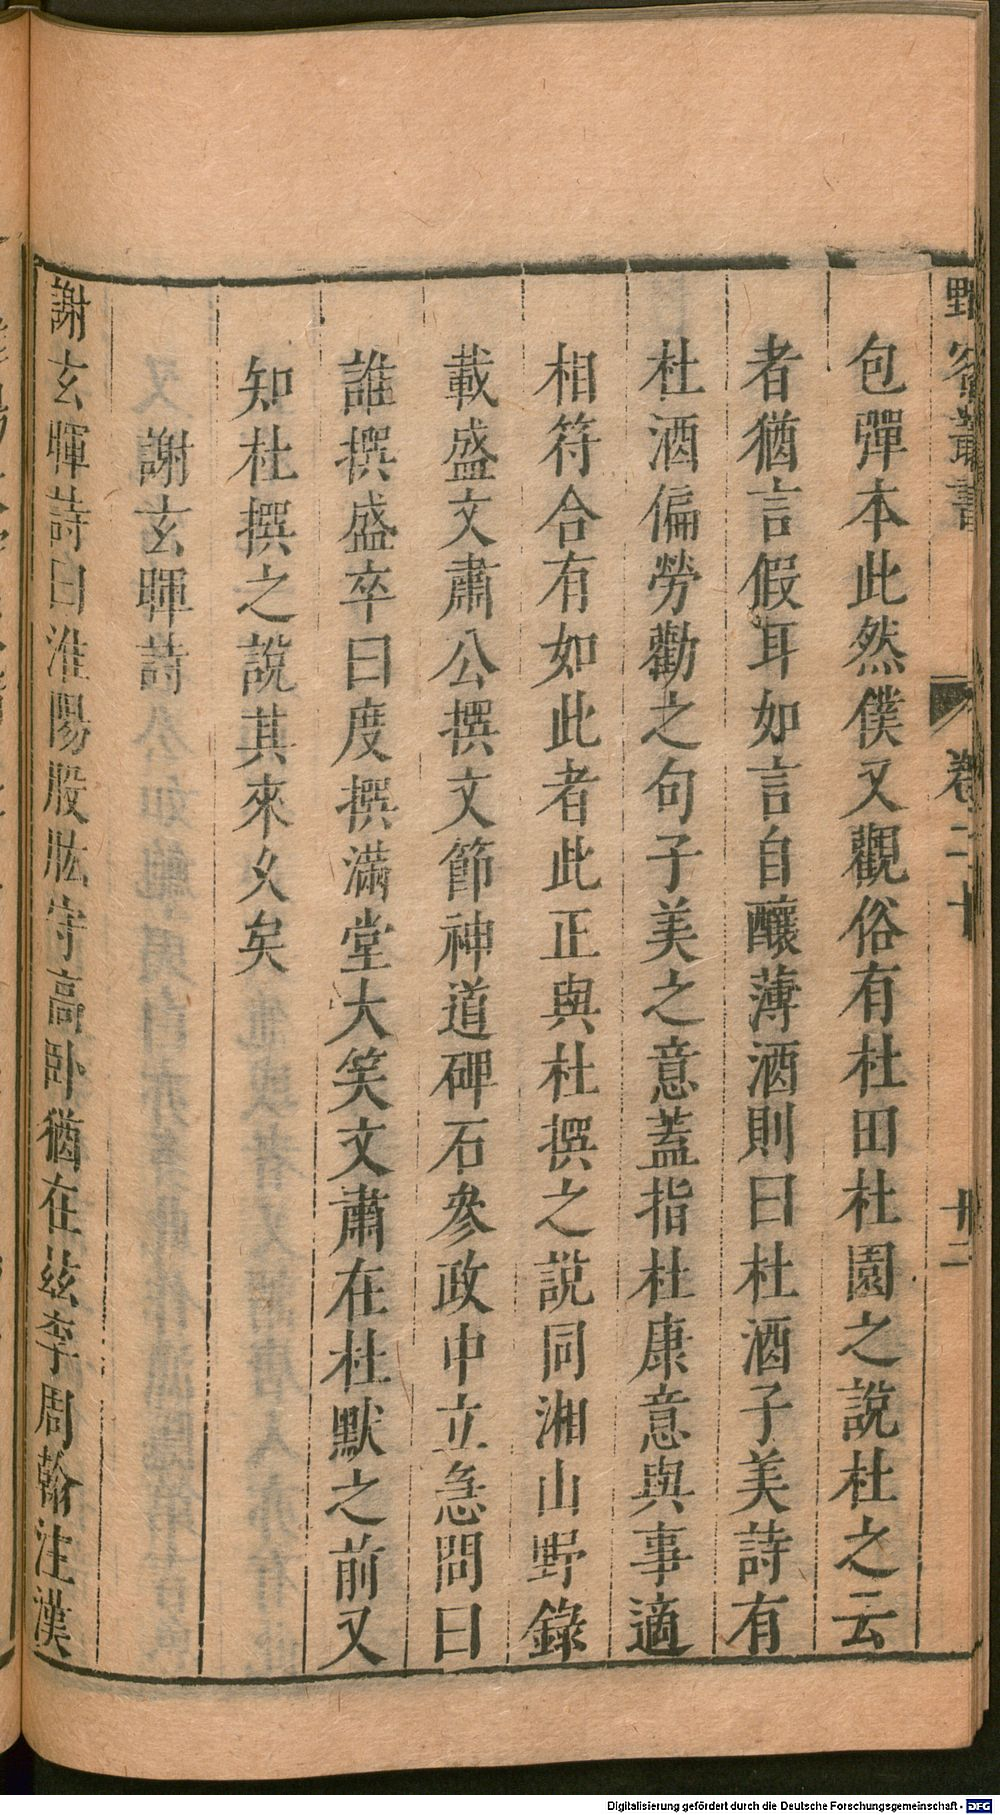 野客叢書 卷二十 廿二
包彈本此然僕又觀俗有杜田杜園之說杜之云
者猶言假耳如言自釀薄酒則曰杜酒子美詩有
杜酒偏勞勸之句子美之意蓋指杜康意與事適
相符合有如此者此正與杜撰之說同湘山野錄
載盛文肅公撰文節神道碑石參政中立急問曰
誰撰盛卒曰度撰滿堂大笑文肅在杜默之前又
知杜撰之說其來久矣
謝玄暉詩
謝玄暉詩曰淮陽股肱守高臥猶在茲李周翰注漢
Digitalisierung gefördert durch die Deutsche Forschungsgemeinschaft - DFG